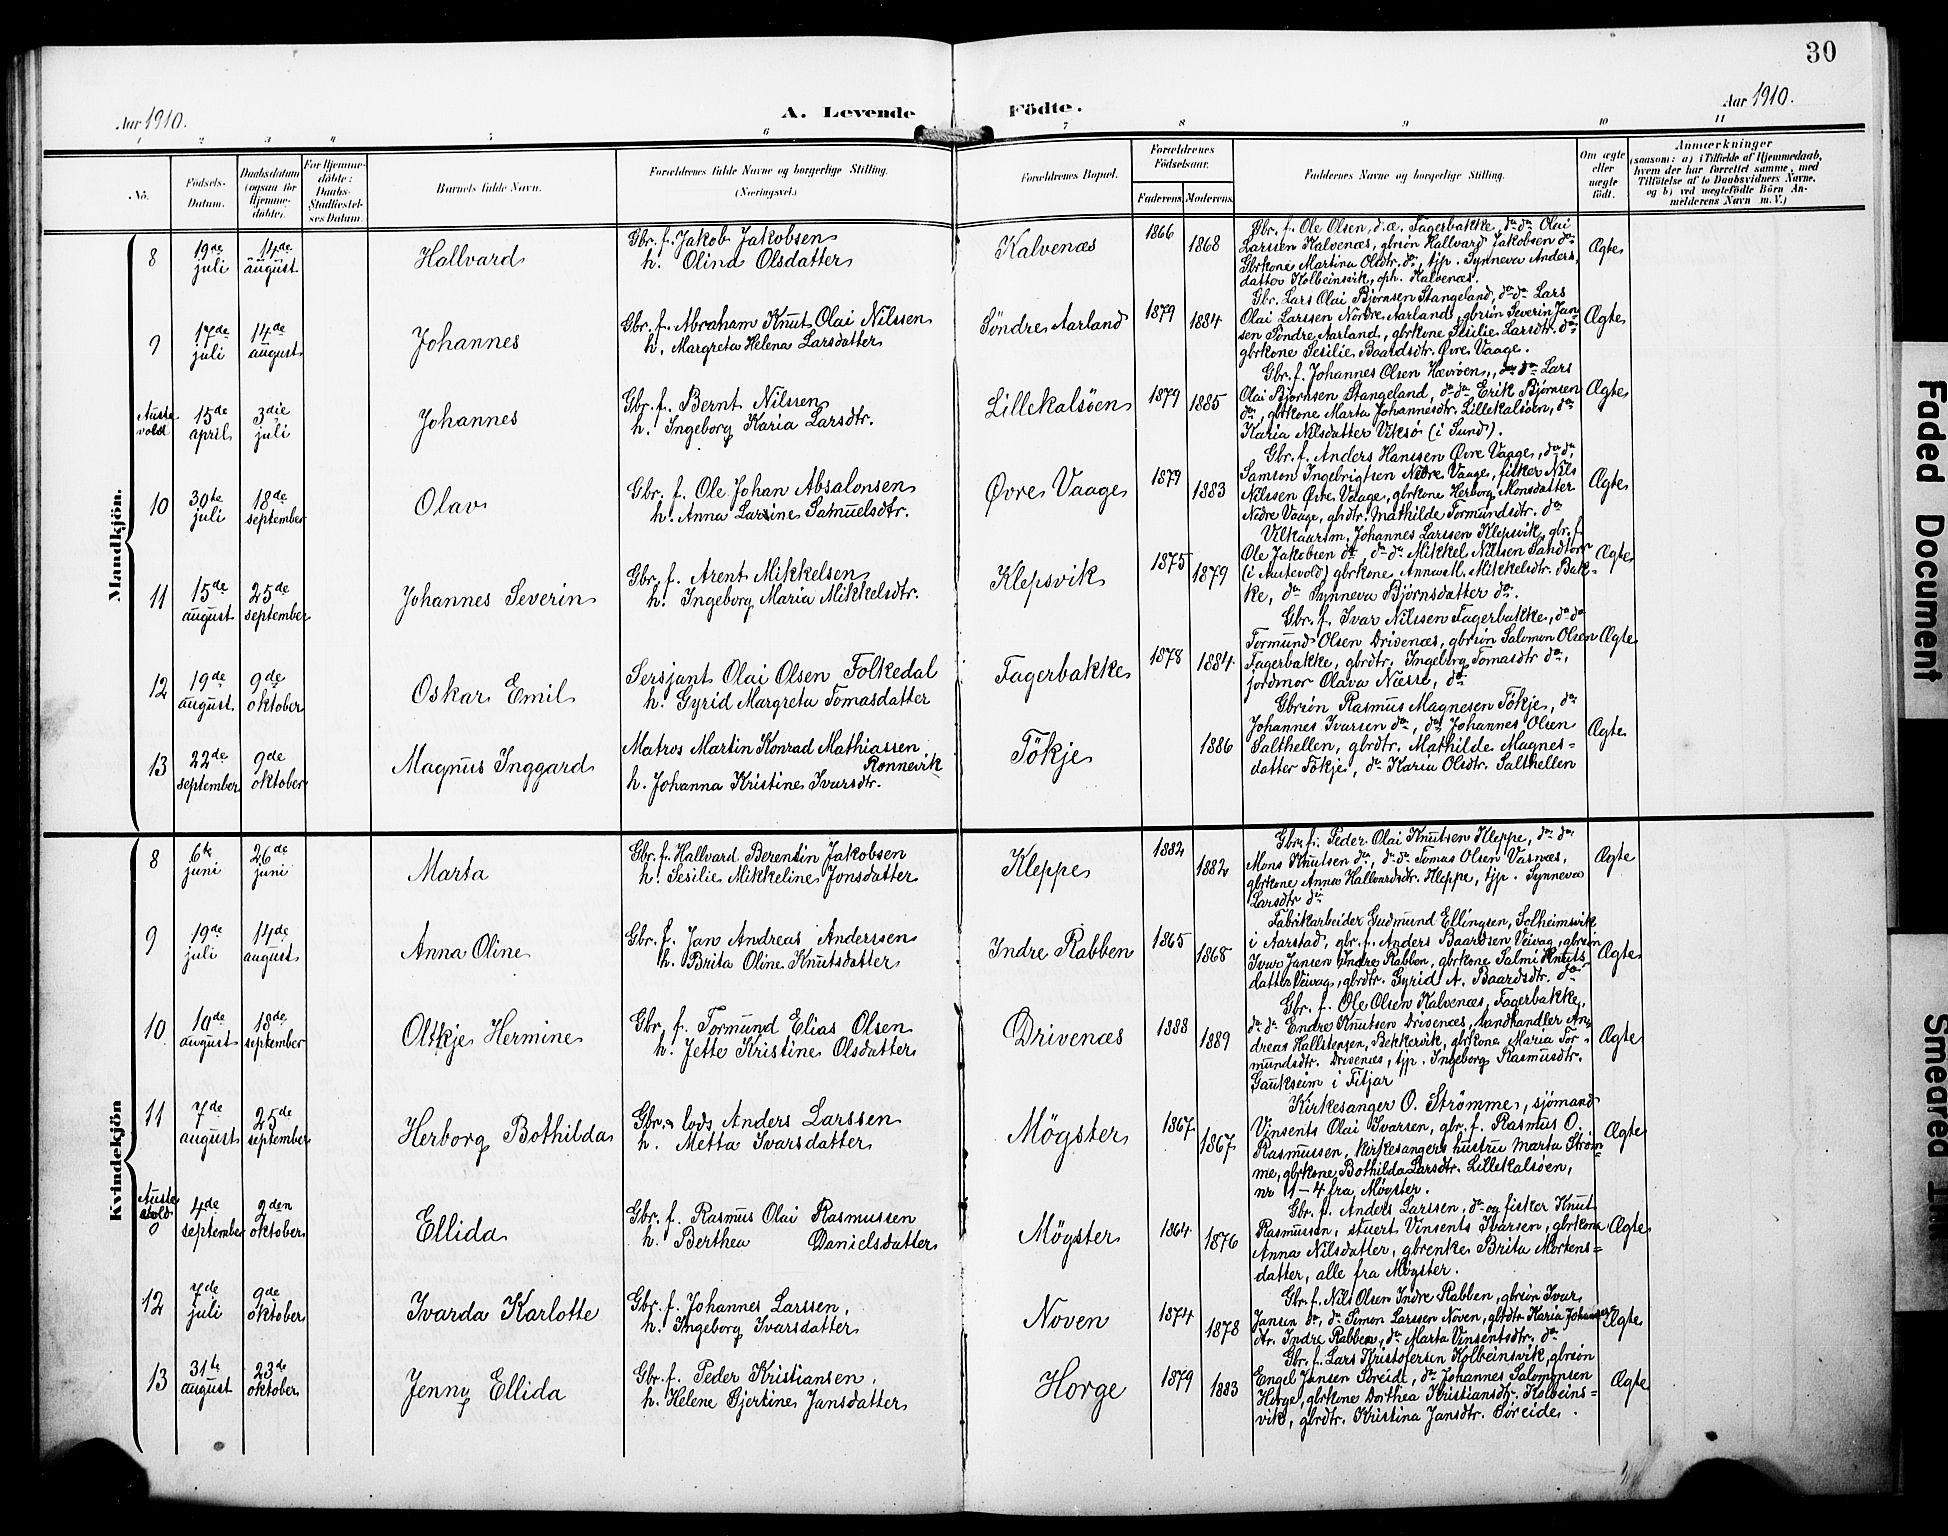 30
Aar 1910.
A. Levende Födte.
Aar 1910.
1 2 3 4 5 6 7 8 9 10 11
No.
Födsels-Datum.
Daabsdatum (ogsaa for Hjemmedöbte).
For Hjemmedöbte: Daabs-Stadfæstelses Datum.
Barnets fulde Navn.
Forældrenes fulde Navne og borgerlige Stilling.
(Næringsvei.)
Forældrenes Bopæl.
Forældrenes Födselsaar.
Faderens. Moderens.
Faddernes Navne og borgerlige Stilling.
Om ægte eller uægte födt.
Anmærkninger
(saasom: a) i Tilfælde af Hjemmedaab, hvem der har forrettet samme, med Tilföielse af to Daabsvidners Navne, og b) ved uægtefödte Börn Anmelderens Navn m. V.)
Mandkjön.
8 19de juli 14de august Hallvard
Gbr. f. Jakob Jakobsen
h. Olina Olsdatter
Kalvenæs 1866 1868
Gbr. f. Ole Olsen, d.æ. Fagerbakke, do do Olai
Larssen Kalvenæs, gbrsön Hallvard Jakobsen do
Gbrkone Martina Olsdtr. do, tjp. Synneva Anders-
datter Kolbeinsvik, oph. Kalvenæs.
Ægte
9 17de juli 14de august Johannes
Gbr. f. Abraham Knut Olai Nilssen
h. Margreta Helena Larsdatter
Söndre Aarland 1879 1884
Gbr. Lars Olai Bjørnsen Stangeland, do do Lars
Olai Larssen Nordre Aarland, gbrsön Severin Jan-
sen Söndre Aarland, gbrkone Sesilie Larsdtr. do
gbrkone Sesilie Baardsdtr. Øvre Vaage.
Ægte
Austevold 15de april 3die juli Johannes
Gbr. f. Bernt Nilssen
h. Ingeborg Karia Larsdtr.
Lillekalsöen 1879 1885
Gbr. f. Johannes Olsen Hævröen, do do Lars
Olai Bjørnsen Stangeland, do do Erik Bjørnsen
do, gbrkone Marta Johannesdtr. Lillekalsöen, do
Karia Nilsdatter Viksö (i Sund).
Ægte
10 30te juli 18de september Olav
Gbr. f. Ole Johan Absalonsen
h. Anna Larsine Samuelsdtr.
Øvre Vaage 1879 1883
Gbr. f. Anders Hanssen Øvre Vaage, do do
Samson Ingebrigtsen Nedre Vaage, fisker Nils
Nilssen Øvre Vaage, gbrkone Herborg Monsdatter
Nedre Vaage, gbrdtr. Mathilde Tormundsdtr. do
Ægte
11 15de august 25de september Johannes Severin
Gbr. f. Arent Mikkelsen
h. Ingeborg Maria Mikkelsdtr.
Klepsvik 1875 1879
Vilkaarsm. Johannes Larssen Klepsvik, gbr. f.
Ole Jakobsen do, do do Mikkel Nilssen Sandtorv
(i Austevold) gbrkone Anna M. Mikkelsdtr. Bak-
ke, do Synneva Bjørnsdatter do.
Ægte
12 19de august 9de oktober Oskar Emil
Sersjant Olai Olsen Folkedal
h. Gyrid Margreta Tomasdatter
Fagerbakke 1878 1884
Gbr. f. Ivar Nilssen Fagerbakke, do do
Tormund Olsen Drivenæs, gbrsön Salomon Olsen
Fagerbakke, gbrdtr. Ingeborg Tomasdtr do,
jordmor Olava Næsse, do
Ægte
13 22de september 9de oktober Magnus Inggard
Matros Martin Konrad Mathiassen
Rönnevik
h. Johanna Kristine Ivarsdtr.
Tökje 1886
Gbrsön Rasmus Magnesen Tökje, do
Johannes Ivarssen do, do Johannes Olsen
Salthellen, gbrdtr. Mathilde Magnes-
datter Tökje, do Karia Olsdtr. Salthellen
Ægte
Kvindekjön
8 6te juni 26de juni Marta
Gbr. f. Hallvard Berentin Jakobsen
h. Sesilie Mikkeline Jonsdatter
Kleppe 1882 1882
Gbr. f. Peder Olai Knutsen Kleppe, do do
Mons Knutsen do, do do Tomas Olsen Vasnæs,
gbrkone Anna Hallvardsdtr. Kleppe, tjp. Synneva
Larsdtr do
Ægte
9 19de juli 14de august Anna Oline
Gbr. f. Jan Andreas Anderssen
h. Brita Oline Knutsdatter
Indre Rabben 1865 1868
Fabrikarbeider Gudmund Ellingsen, Solheimsvik
i Aarstad, gbr. f. Anders Baardsen Veivag, gbrsön
Ivar Jansen Indre Rabben, gbrkone Salmi Knuts
datter Veivag, gbrdtr. Gyrid A. Baardsdtr. do
Ægte
10 19de august 18de september Oltkje Hermine
Gbr. f. Tormund Elias Olsen
h. Jette Kristine Olsdatter
Drivenæs 1888 1889
Gbr. f. Ole Olsen Kalvenæs, Fagerbakke,
do do Endre Knutsen Drivenæs, landhandler An-
dreas Hallstensen, Bekkervik, gbrkone Maria Tor-
mundsdtr. Drivenæs, tjp. Ingeborg Rasmusdtr.
Gaukseim i Fitjar
Ægte
11 7de august 25de september Herborg Bothilda
Gbr. & lods Anders Larssen
h. Metta Ivarsdatter
Møgster 1867 1867
Kirkesanger O. Strömme, sjömand
Vinsents Olai Ivarsen, gbr. f. Rasmus O.
Rasmussen, kirkesangers hustru Marta Ström-
me, gbrkone Bothilda Larsdtr. Lillekalsöen,
nr 1-4 fra Møgster.
Ægte
Austevold 8 4de september 2den oktober Ellida
Gbr. f. Rasmus Olai Rasmussen
h. Berthea Danielsdatter
Møgster 1864 1876
Gbr. f. Anders Larssen, do og fisker Knut
Rasmussen, stuert Vinsents Ivarsen, gbrkone
Anna Nilsdatter, gbrenke Brita Mortens-
datter, alle fra Møgster.
Ægte
12 7de juli 9de oktober Ivarda Karlotte
Gbr. f. Johannes Larssen,
h. Ingeborg Ivarsdatter
Noven 1874 1878
Gbr. f. Nils Olsen Indre Rabben, gbrsön Ivar
Jansen do, do Simon Larssen Noven, gbrdtr Karia Johannes
dtr. Indre Rabben, do Marta Vinsentsdtr. do
Ægte
13 31te august 23de oktober Jenny Ellida
Gbr. f. Peder Kristiansen,
h. Helene Bjertine Jansdatter
Horge 1879 1883
Gbr. f. Lars Kristofersen Kolbeinsvik, gbrsön
Engel Jansen Söreide, do Johannes Salomonsen
Horge, gbrkone Dorthea Kristiansdtr. Kolbeins-
vik, gbrdtr. Kristina Jansdtr. Söreide.
Ægte
Faded Document
Smeared Ink